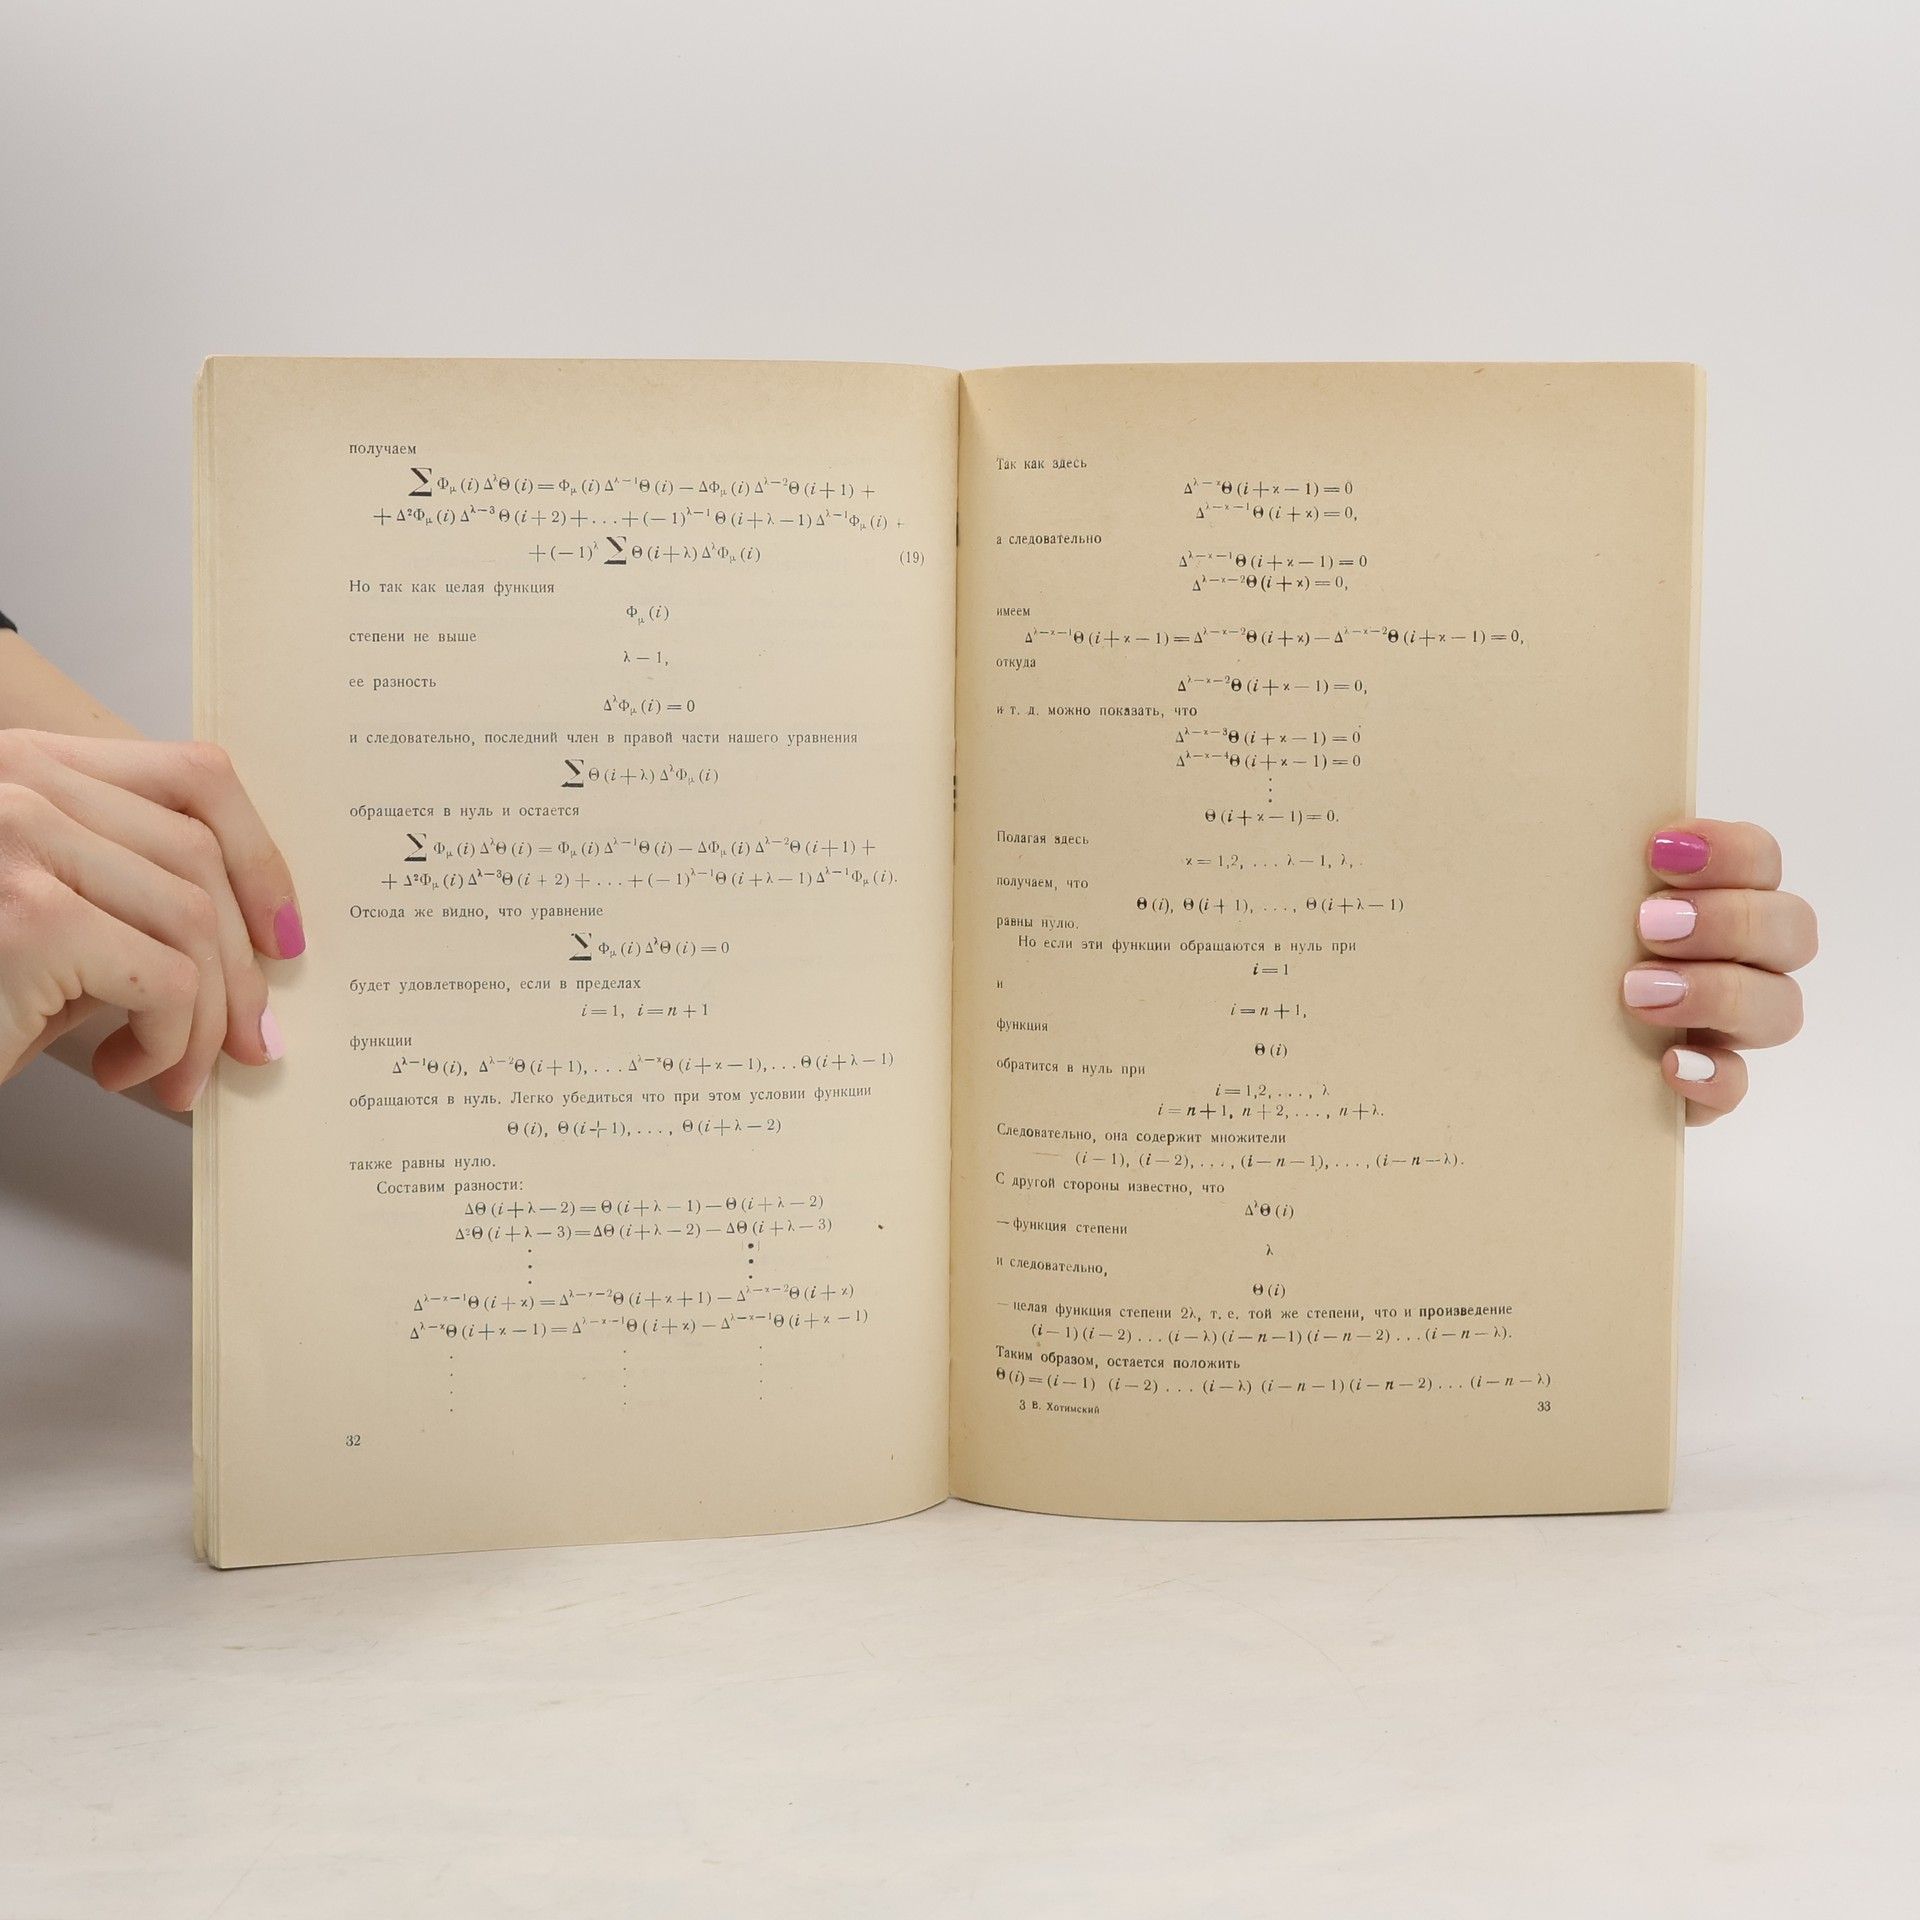 получаем
∑ Φ_μ (i) Δ^λ Θ (i) = Φ_μ (i) Δ^{λ−1} Θ (i) − ΔΦ_μ (i) Δ^{λ−2} Θ (i + 1) +
+ Δ² Φ_μ (i) Δ^{λ−3} Θ (i + 2) + . . . + (− 1)^{λ−1} Θ (i + λ − 1) Δ^{λ−1} Φ_μ (i) +
+ (− 1)^λ ∑ Θ (i + λ) Δ^λ Φ_μ (i) (19)
Но так как целая функция
Φ_μ (i)
степени не выше
λ − 1,
ее разность
Δ^λ Φ_μ (i) = 0
и следовательно, последний член в правой части нашего уравнения
∑ Θ (i + λ) Δ^λ Φ_μ (i)
обращается в нуль и остается
∑ Φ_μ (i) Δ^λ Θ (i) = Φ_μ (i) Δ^{λ−1} Θ (i) − ΔΦ_μ (i) Δ^{λ−2} Θ (i + 1) +
+ Δ² Φ_μ (i) Δ^{λ−3} Θ (i + 2) + . . . + (− 1)^{λ−1} Θ (i + λ − 1) Δ^{λ−1} Φ_μ (i).
Отсюда же видно, что уравнение
∑ Φ_μ (i) Δ^λ Θ (i) = 0
будет удовлетворено, если в пределах
i = 1, i = n + 1
функции
Δ^{λ−1} Θ (i), Δ^{λ−2} Θ (i + 1), . . . Δ^{λ−ϰ} Θ (i + ϰ − 1), . . . Θ (i + λ − 1)
обращаются в нуль. Легко убедиться что при этом условии функции
Θ (i), Θ (i + 1), . . . , Θ (i + λ − 2)
также равны нулю.
Составим разности:
ΔΘ (i + λ − 2) = Θ (i + λ − 1) − Θ (i + λ − 2)
Δ² Θ (i + λ − 3) = ΔΘ (i + λ − 2) − ΔΘ (i + λ − 3)
Δ^{λ−ϰ−1} Θ (i + ϰ) = Δ^{λ−ϰ−2} Θ (i + ϰ + 1) − Δ^{λ−ϰ−2} Θ (i + ϰ)
Δ^{λ−ϰ} Θ (i + ϰ − 1) = Δ^{λ−ϰ−1} Θ (i + ϰ) − Δ^{λ−ϰ−1} Θ (i + ϰ − 1)
32
Так как здесь
Δ^{λ−ϰ} Θ (i + ϰ − 1) = 0
Δ^{λ−ϰ−1} Θ (i + ϰ) = 0,
а следовательно
Δ^{λ−ϰ−1} Θ (i + ϰ − 1) = 0
Δ^{λ−ϰ−2} Θ (i + ϰ) = 0,
имеем
Δ^{λ−ϰ−1} Θ (i + ϰ − 1) = Δ^{λ−ϰ−2} Θ (i + ϰ) − Δ^{λ−ϰ−2} Θ (i + ϰ − 1) = 0,
откуда
Δ^{λ−ϰ−2} Θ (i + ϰ − 1) = 0,
и т. д. можно показать, что
Δ^{λ−ϰ−3} Θ (i + ϰ − 1) = 0
Δ^{λ−ϰ−4} Θ (i + ϰ − 1) = 0
Θ (i + ϰ − 1) = 0.
Полагая здесь
ϰ = 1,2, . . . λ − 1, λ,
получаем, что
Θ (i), Θ (i + 1), . . . , Θ (i + λ − 1)
равны нулю.
Но если эти функции обращаются в нуль при
i = 1
и
i = n + 1,
функция
Θ (i)
обратится в нуль при
i = 1,2, . . . , λ
i = n + 1, n + 2, . . . , n + λ.
Следовательно, она содержит множители
(i − 1), (i − 2), . . . , (i − n − 1), . . . , (i − n − λ).
С другой стороны известно, что
Δ^λ Θ (i)
— функция степени
λ
и следовательно,
Θ (i)
— целая функция степени 2λ, т. е. той же степени, что и произведение
(i − 1) (i − 2) . . . (i − λ) (i − n − 1) (i − n − 2) . . . (i − n − λ).
Таким образом, остается положить
Θ (i) = (i − 1) (i − 2) . . . (i − λ) (i − n − 1) (i − n − 2) . . . (i − n − λ)
3 В. Хотимский 33